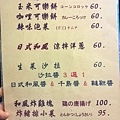 玉米可樂餅 コーンコロッケ 60.
咖哩可樂餅 カレーコロッケ 60.
辣味泡菜 60.
日式和風 涼拌洋蔥 60.
生菜沙拉 60.
沙拉醬3選1
日式和風醬&千島醬&
和風炸雞塊 鶏の唐揚げ 100.
炸豬排小菜 とんかつ 100.